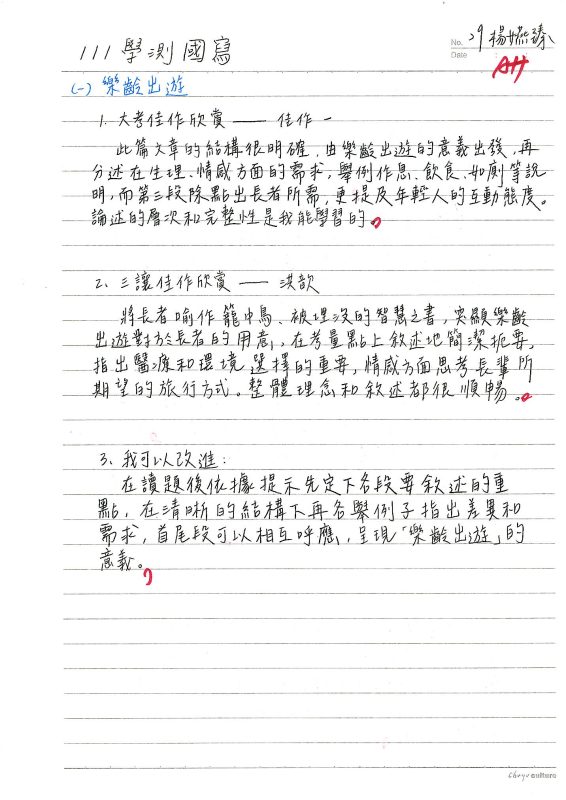 No. 29 楊嬿臻
Date
111學測國寫
A++
(一) 樂齡出遊
1. 大考佳作欣賞 —— 佳作一
此篇文章的結構很明確,由樂齡出遊的意義出發,再
分述在生理、情感方面的需求,舉例作息、飲食、如廁等說
明,而第三段除點出長者所需,更提及年輕人的互動態度。
論述的層次和完整性是我能學習的。
2. 三讓佳作欣賞 —— 洪歆
將長者喻作籠中鳥、被埋沒的智慧之書,突顯樂齡
出遊對於長者的用意,在考量點上敘述地簡潔扼要,
指出醫療和環境選擇的重要,情感方面思考長輩所
期望的旅行方式。整體理念和敘述都很順暢。
3. 我可以改進:
在讀題後依據提示先定下各段要敘述的重
點,在清晰的結構下再各舉例子指出差異和
需求,首尾段可以相互呼應,呈現「樂齡出遊」的
意義。
Chuyu culture